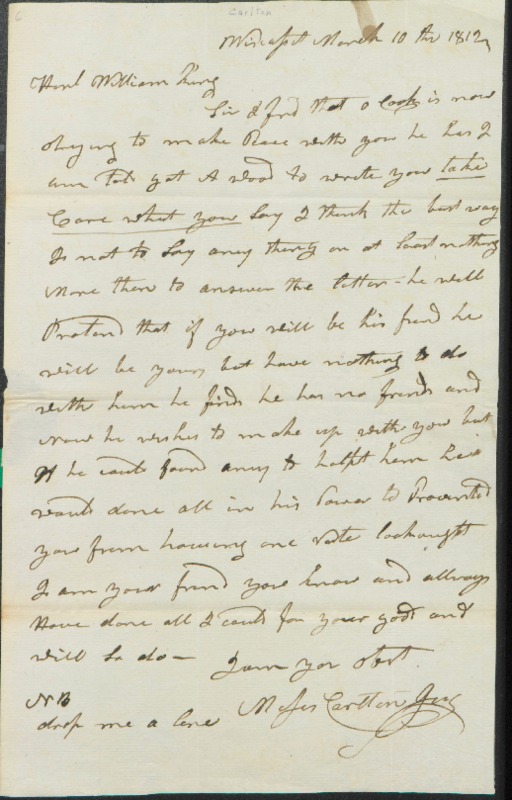 Carlton
Wiscasset March 10th 1812
Honl William King
Sir I find that o Cook is now
trying to make Peace with you he has I
am told got A wood to write you take
Care what you Say I think the best way
Is not to Say any thing or at least nothing
More then to answer the letter - he will
Pretend that if you will be his frend he
will be yours but have nothing to do
with him he finds he has no frends and
Now he wishes to make up with you but
If he could found any to halpt him he
would done all in his Power to Prevented
you from having one vote lookought
I am your frend you know and allways
Have done all I could for your good and
will so do -
I am yor obst
NB
drop me a line Moses Carlton Jun